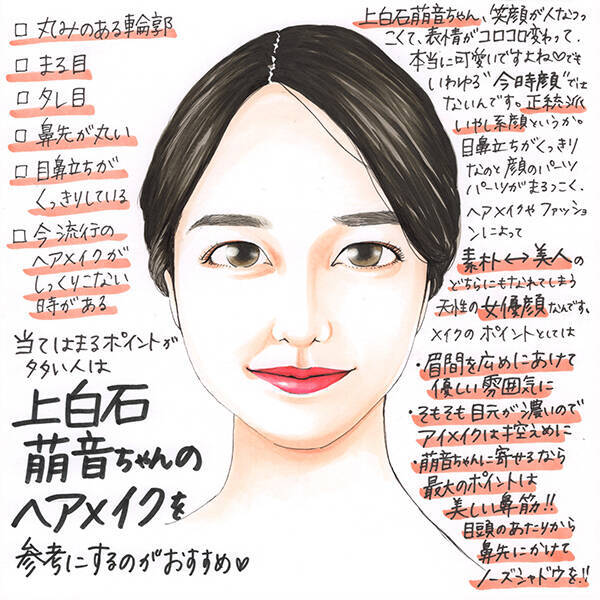 □ 丸みのある輪郭
□ まる目
□ タレ目
□ 鼻先が丸い
□ 目鼻立ちが
くっきりしている
□ 今流行の
ヘアメイクが
しっくりこない
時がある
当てはまるポイントが
多い人は
上白石
萌音ちゃんの
ヘアメイクを
参考にするのがおすすめ♡
上白石萌音ちゃん、笑顔が人なつっ
こくて、表情がコロコロ変わって、
本当に可愛いですよね♡でも
いわゆる"今時顔"では
ないんです。正統派
いやし系顔というか。
目鼻立ちがくっきり
なのと顔のパーツ
パーツがまるっこく、
ヘアメイクやファッショ
ンによって
素朴↔美人の
どちらにもなれてしまう
天性の女優顔なんです。
メイクのポイントとしては
・眉間を広めにあけて
優しい雰囲気に
・そもそも目元が濃いので
アイメイクは控えめに
・萌音ちゃんに寄せるなら
最大のポイントは
美しい鼻筋!!
目頭のあたりから
鼻先にかけて
ノーズシャドウを!!